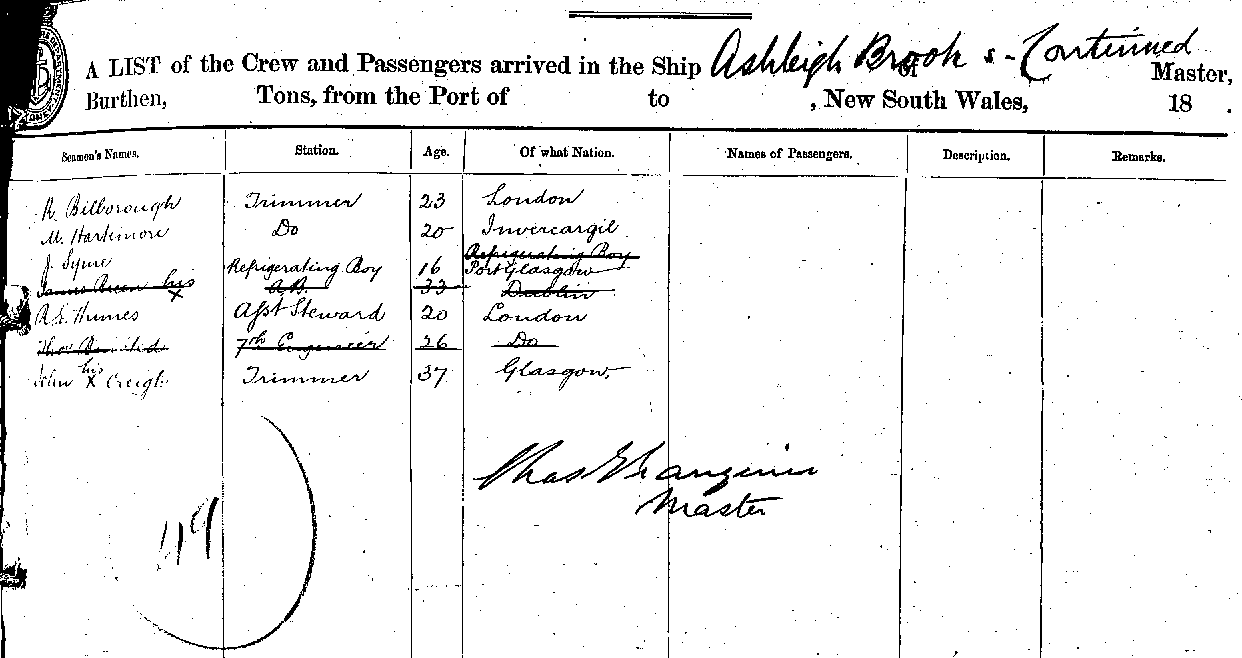 A LIST of the Crew and Passengers arrived in the Ship Ashleigh Brook s - Continued
of Master,
Burthen, Tons, from the Port of to , New South Wales, 18 .
Seamen's Names. Station. Age. Of what Nation. Names of Passengers. Description. Remarks.
R. Bilborough Trimmer 23 London
M. Hartimore Do 20 Invercargil
Refrigerating Boy
J. Syme Refrigerating Boy 16 Port Glasgow
James his x A.B. 33 Dublin
R. S. Humes Asst Steward 20 London
Thos 7th Engineer 26 Do
John his x Creigh Trimmer 37 Glasgow.
Chas
Master
49